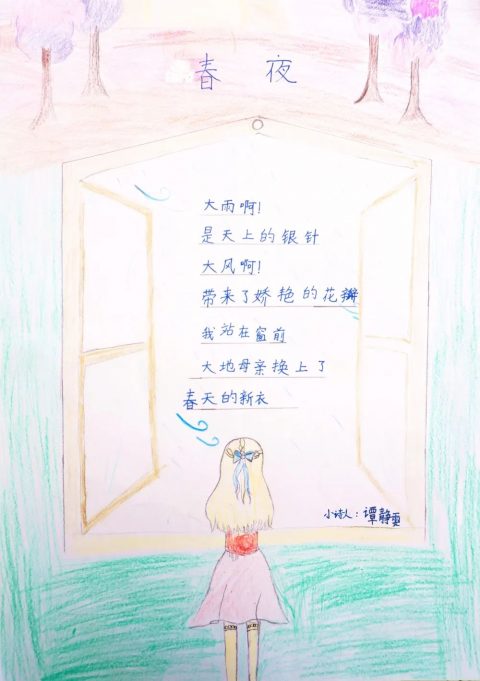 春 夜
大雨啊!
是天上的银针
大风啊!
带来了娇艳的花瓣
我站在窗前
大地母亲换上了
春天的新衣
小诗人：谭静雯